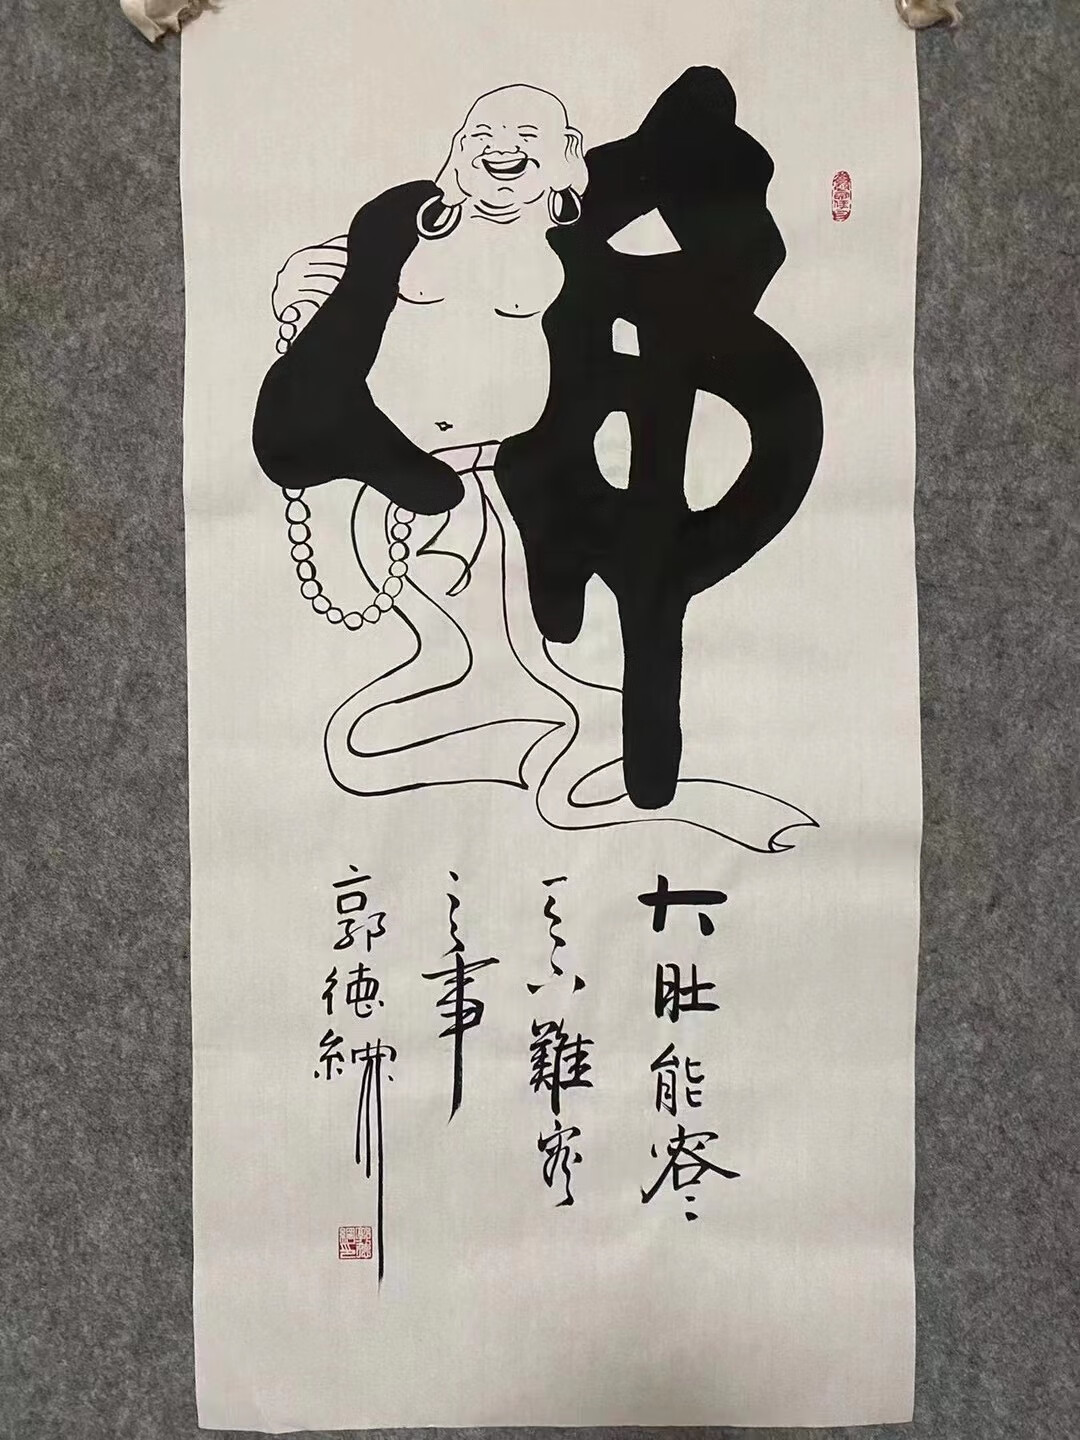 佛
大肚能容〻
天下難容
之事
郭德綱